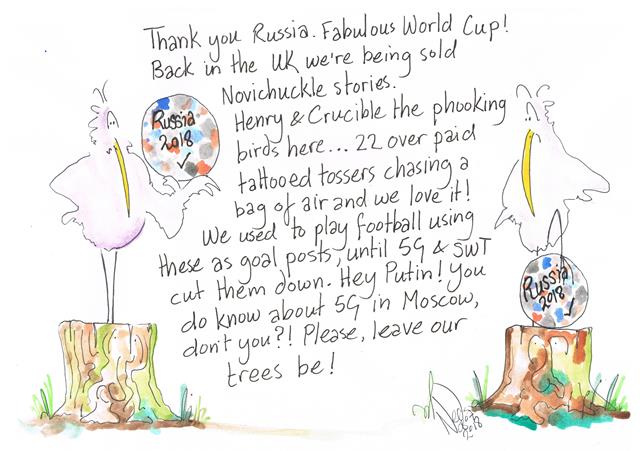 Thank you Russia. Fabulous World Cup!
Back in the UK we're being sold
Novichuckle stories.
Henry & Crucible the phooking
birds here... 22 over paid
tattooed tossers chasing a
bag of air and we love it!
We used to play football using
these as goal posts, until 5G & SWT
cut them down. Hey Putin! You
do know about 5G in Moscow,
don't you?! Please, leave our
trees be!
Russia
2018
Russia
2018
2018